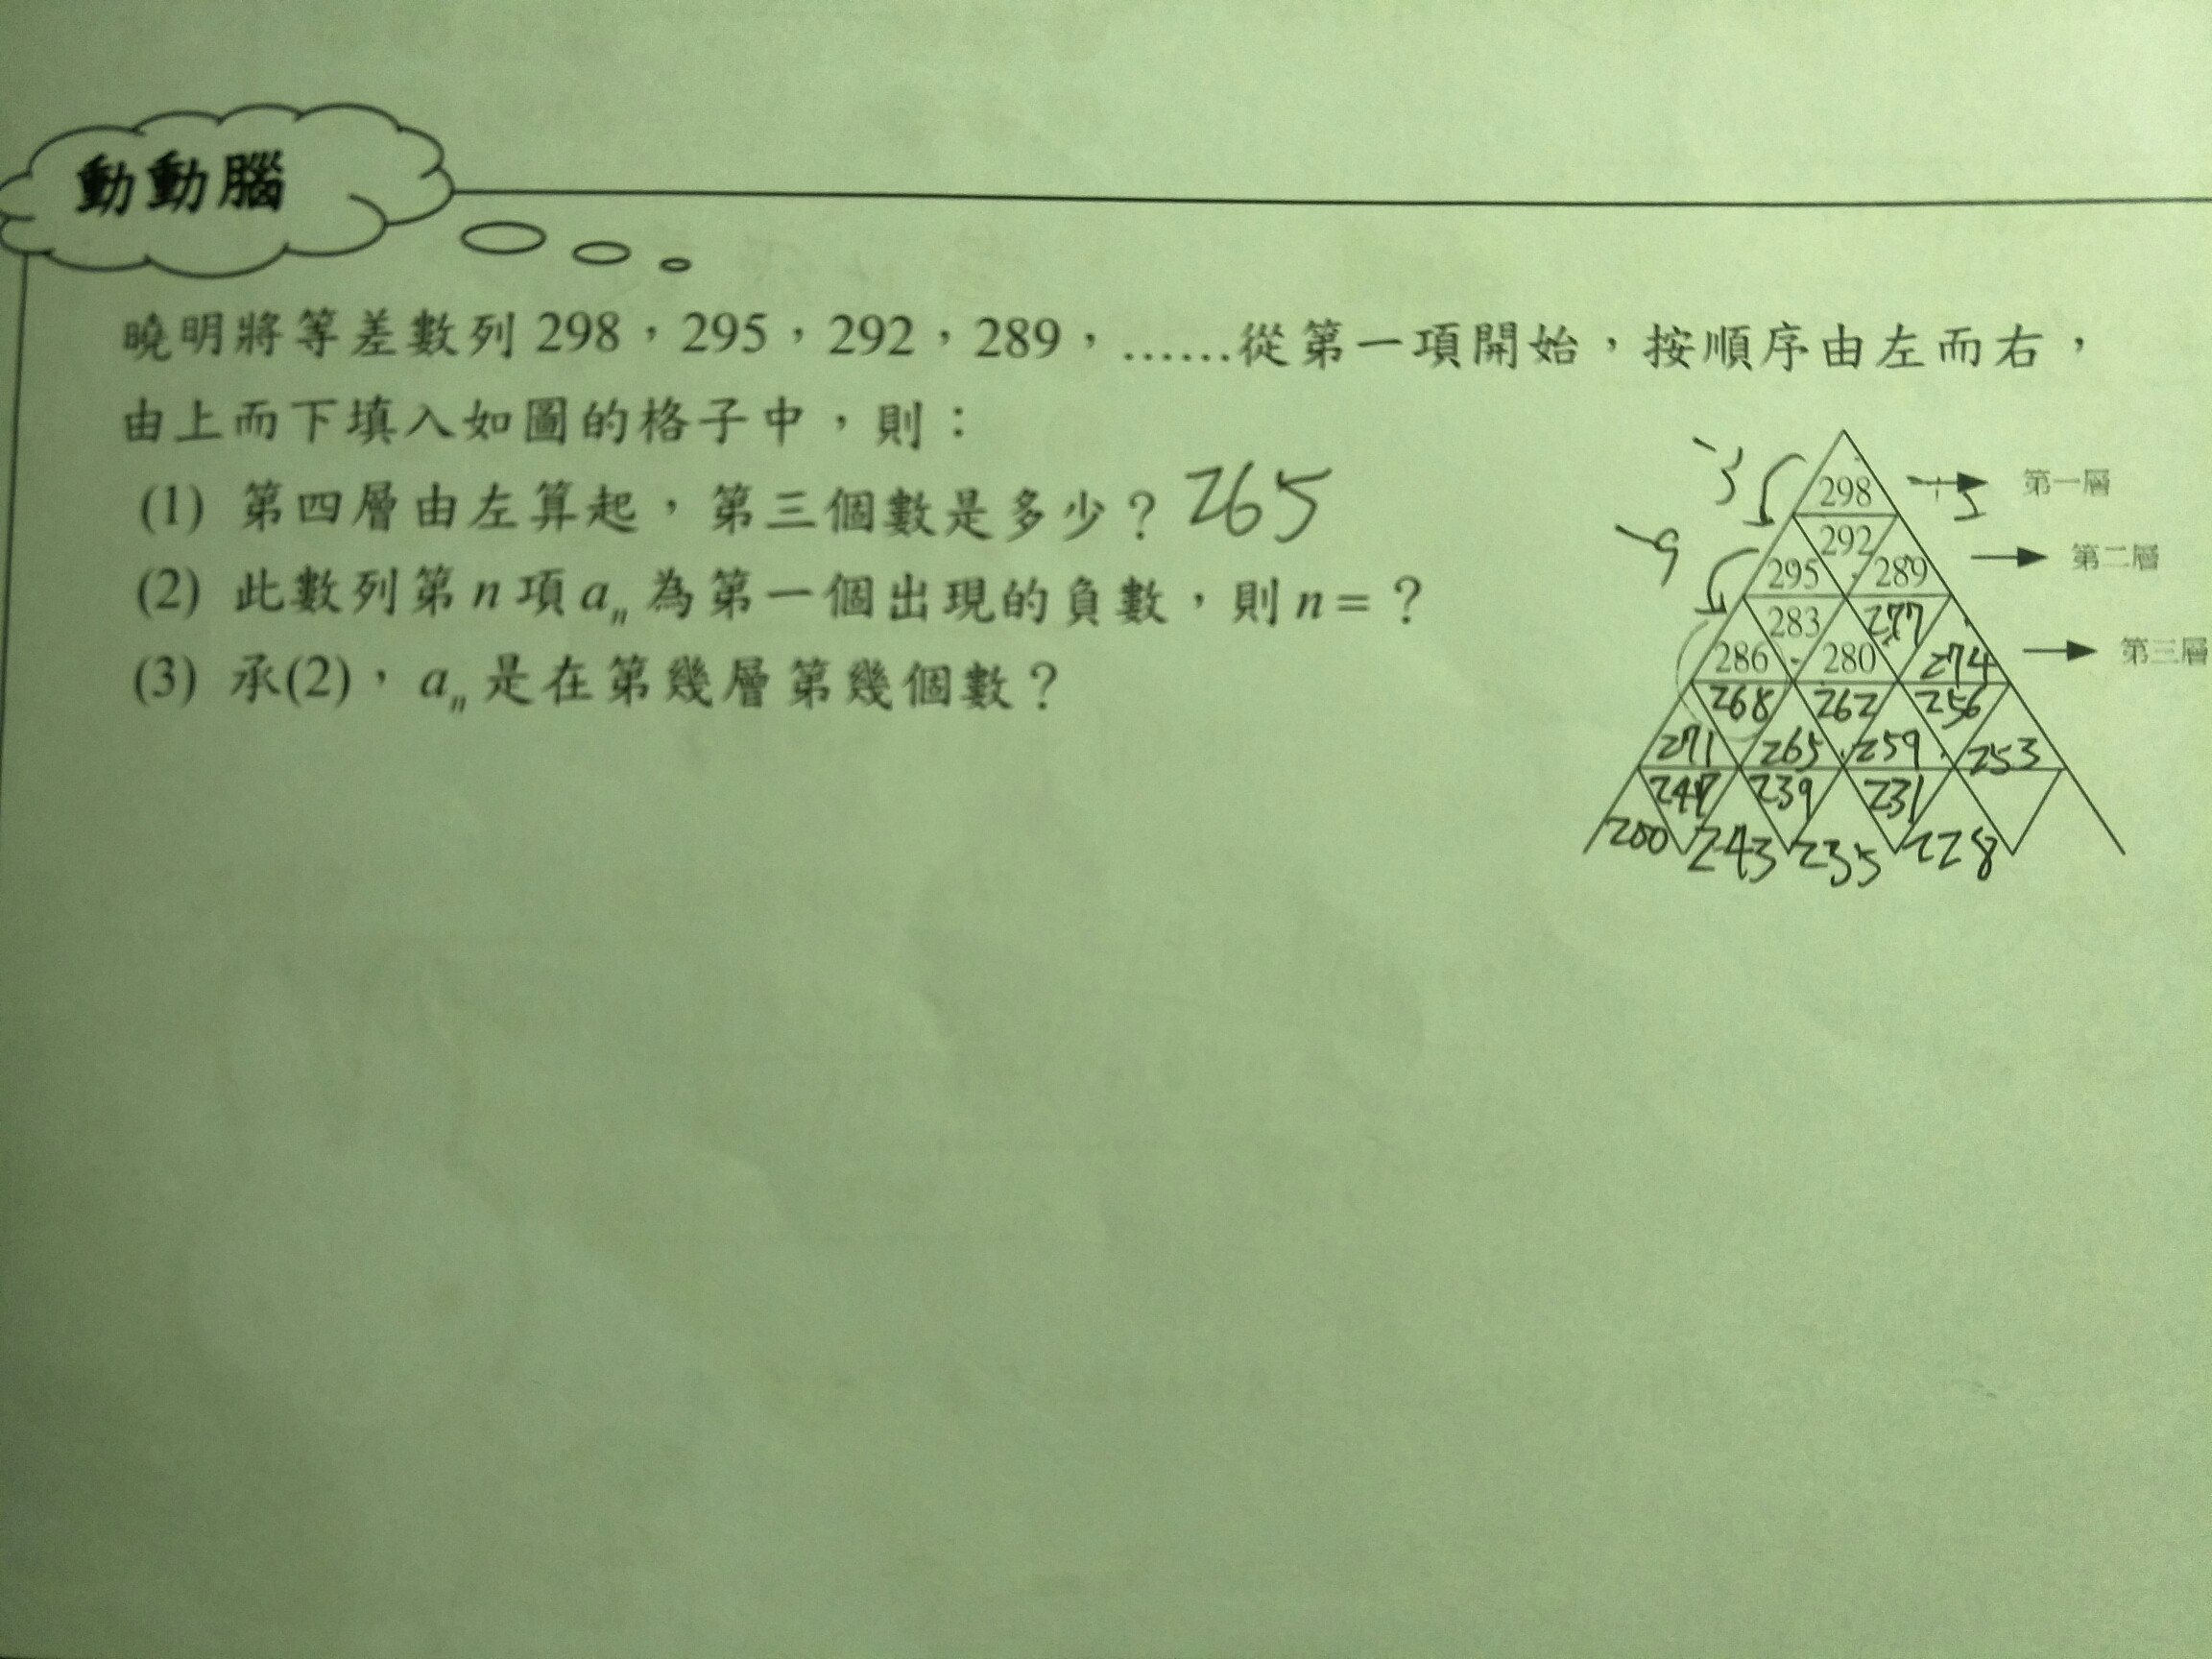 動動腦
曉明將等差數列 298，295，292，289，……從第一項開始，按順序由左而右，
由上而下填入如圖的格子中，則：
(1) 第四層由左算起，第三個數是多少？ 265
(2) 此數列第 n 項 aₙ 為第一個出現的負數，則 n = ？
(3) 承(2)，aₙ 是在第幾層第幾個數？
-3
298
第一層
-9
292
295 289
第二層
283 277
286 280 274
第三層
268 262 256
271 265 259 253
247 239 231
200 243 235 228